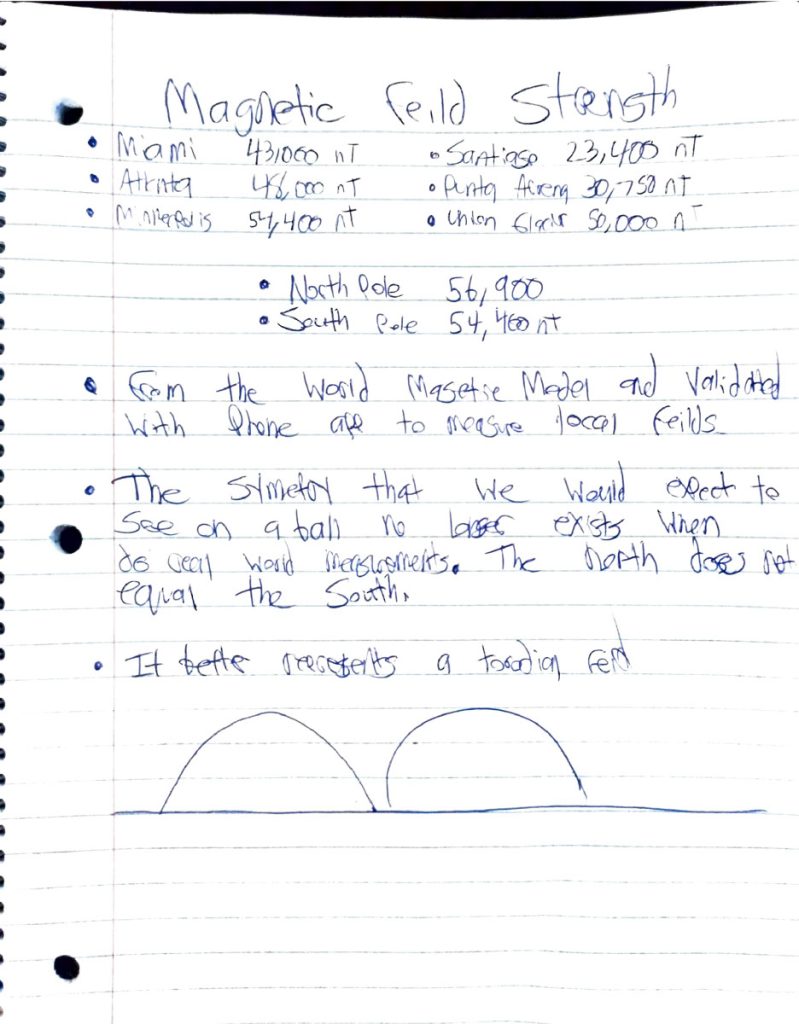 Magnetic Feild Strength
• Miami 43,000 nT • Santiago 23,400 nT
• Atlanta 48,000 nT • Punta Arena 30,750 nT
• Minneapolis 54,400 nT • Union Glacir 50,000 nT
• North Pole 56,900
• South Pole 54,460 nT
• From the World Magetic Model and Validated
with Phone app to measure local feilds
• The Symetry that we would expect to
see on a ball no longer exists when
do real world measurements. The north does not
equal the South.
• It better represents a torodial feild